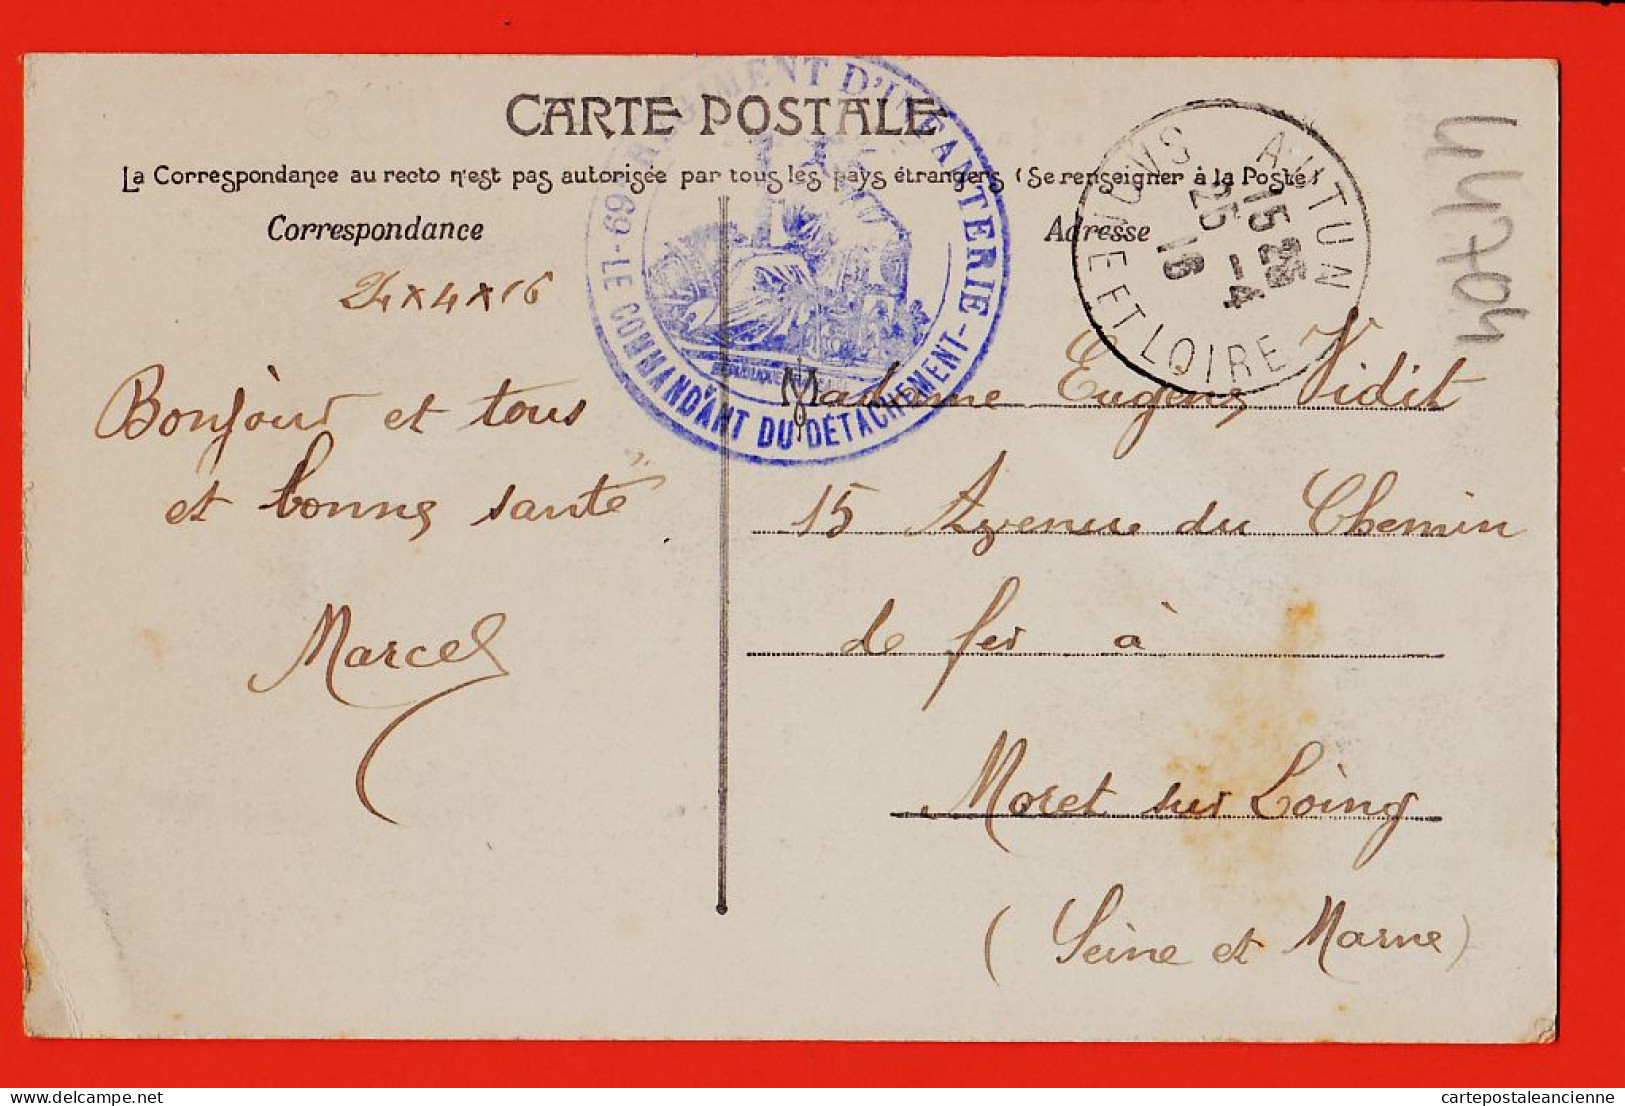 CARTE POSTALE
La Correspondance au recto n'est pas autorisée par tous les pays étrangers (Se renseigner à la Poste)
Correspondance
Adresse
69E RÉGIMENT D'INFANTERIE
- LE COMMANDANT DU DÉTACHEMENT -
AUTUN
15 25
25 - 4
16
SAONE ET LOIRE
44704
24 x 4 x 16
Bonjour et tous
et bonne santé
Marcel
Madame Eugène Vidit
15 Avenue du Chemin
de fer à
Moret sur Loing
(Seine et Marne)
delcampe.net
cartepostaleancienne